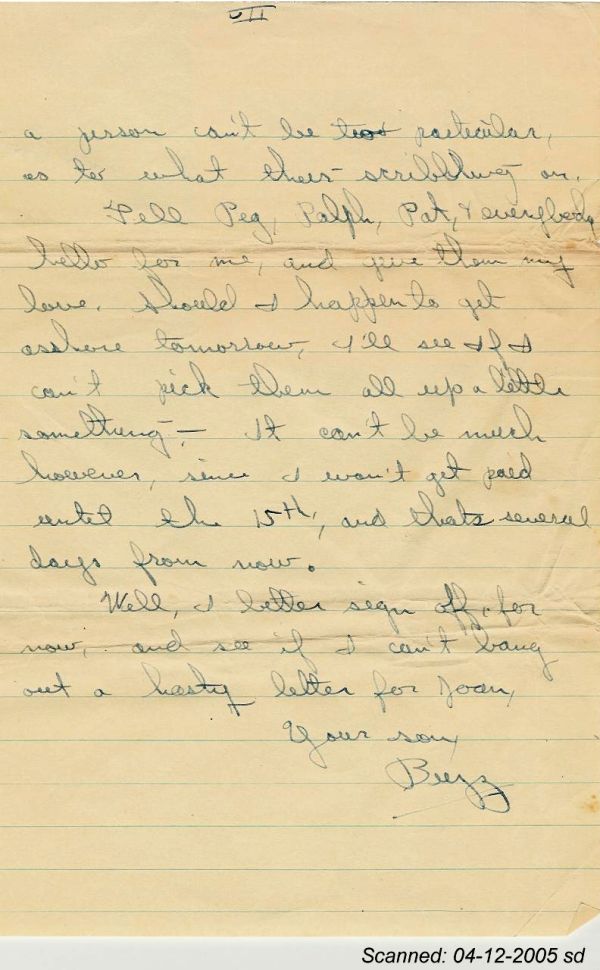 VII
a person can't be too particular,
as to what their scribbling on.
Tell Peg, Ralph, Pat, & everybody
hello for me, and give them my
love. Should I happen to get
asshore tomorrow, I'll see if I
can't pick them all up a little
something – It can't be much
however, since I won't get paid
until the 15th, and thats several
days from now.
Well, I better sign off, for
now, and see if I can't bang
out a hasty letter for Joan,
Your son,
Buzz
Scanned: 04-12-2005 sd